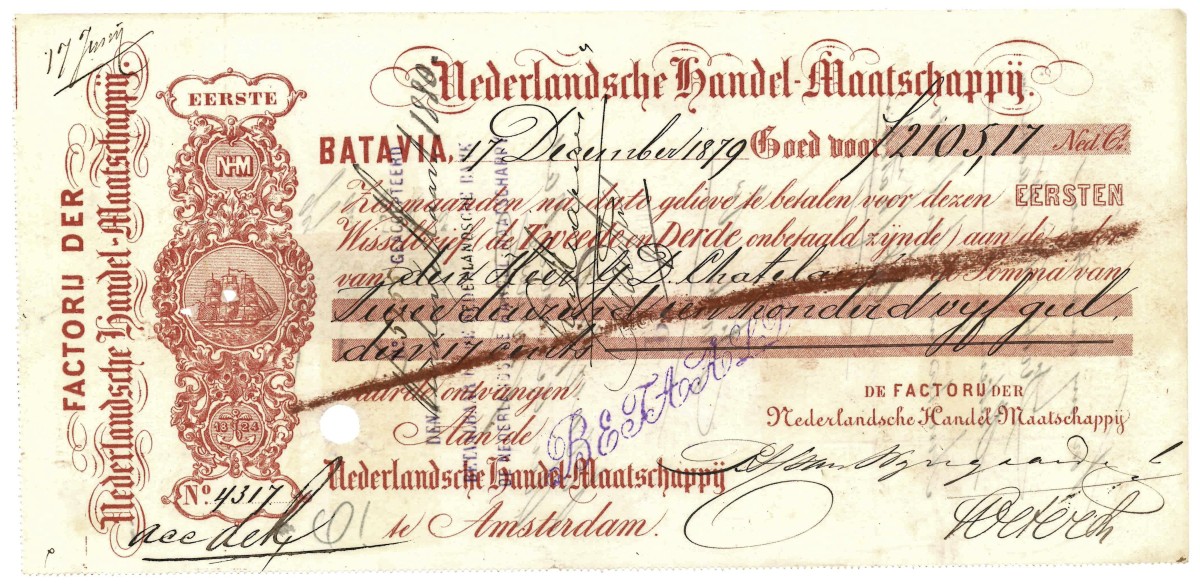 17 Junij
FACTORIJ DER
Nederlandsche Handel-Maatschappij.
EERSTE
NHM
1824
No. 4317
acc dek
Nederlandsche Handel-Maatschappij.
BATAVIA, 17 December 1879 Goed voor f 2105,17 Ned. Ct.
Zes maanden na dato gelieve te betalen voor dezen EERSTEN
Wisselbrief (de Tweede en Derde onbetaald zijnde) aan de order
van den Heer D. Chatelain de Somma van
Twee duizend een honderd vyf gul
den 17 cents
Waarde ontvangen
Aan de
Nederlandsche Handel-Maatschappij
te Amsterdam.
DE FACTORIJ DER
Nederlandsche Handel-Maatschappij
GEACCEPTEERD
DEN 1880
BETAALBAAR BIJ DE NEDERLANDSCHE BANK
DE NEDERLANDSCHE HANDEL-MAATSCHAPPIJ
BETAALD
61